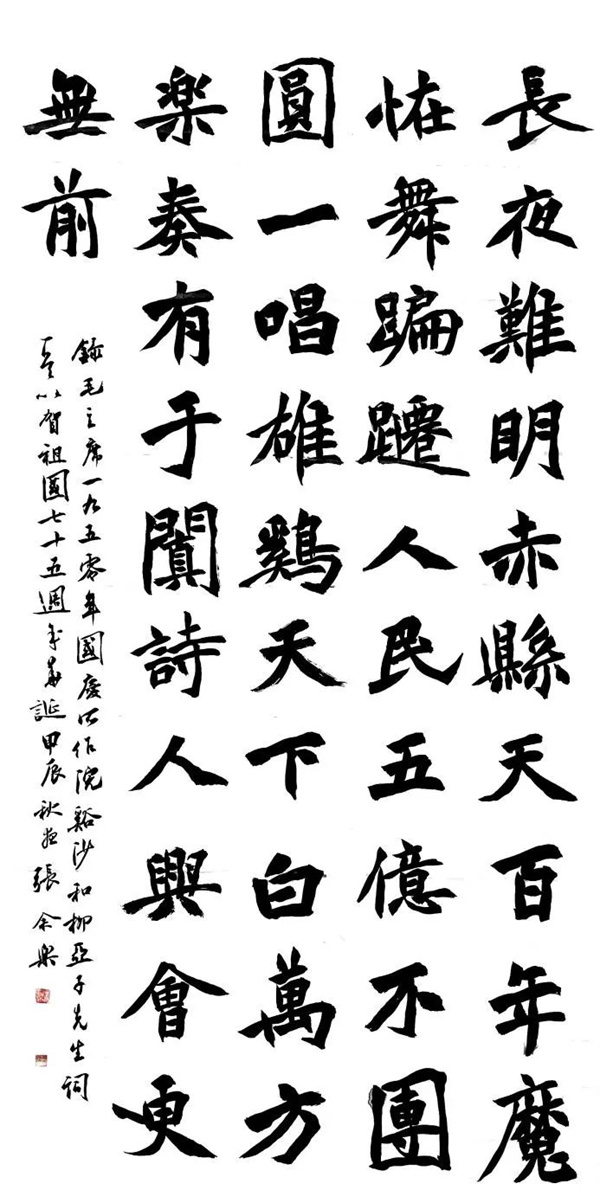 長夜難明赤縣天百年魔
恠舞蹁躚人民五億不團
圓一唱雄鷄天下白萬方
楽奏有于闐詩人興會更
無前
錄毛主席一九五零年國慶所作浣谿沙和柳亞子先生詞
以賀祖國七十五週年華誕甲辰秋張余楽